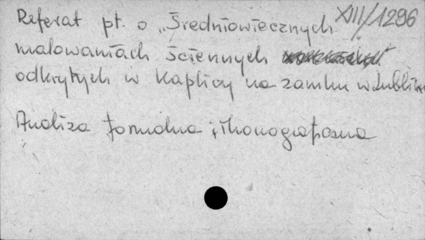 XIII/1296
Referat pt. o „Średniowiecznych
malowaniach ściennych
odkrytych w Kaplicy na zamku w Lublinie
Analiza formalna i ikonograficzna